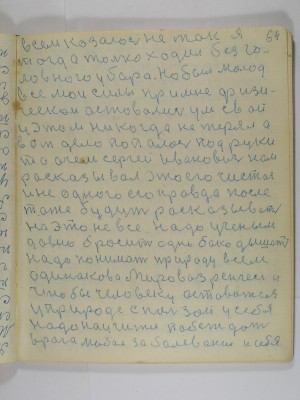 всем казалось не так я 64
тогда толко ходил без го-
ловного убара. Но был молод
все мои силы при мне физи-
ческом оставались ум свой
я этом никогда не терял а
вот дело попалось под руки
то о чем сергей иванович нам
расказывал это его чистая
и не одного его правда после
тоже будут расказывать
на это не все надо ученым
давно бросить одно бако
надо понимать природу всем
одинаково Мировоззрением и
чтобы человеку оставаться
у природе с ней за и у себя
надо научится побеждать
врага любое заболевание и себя